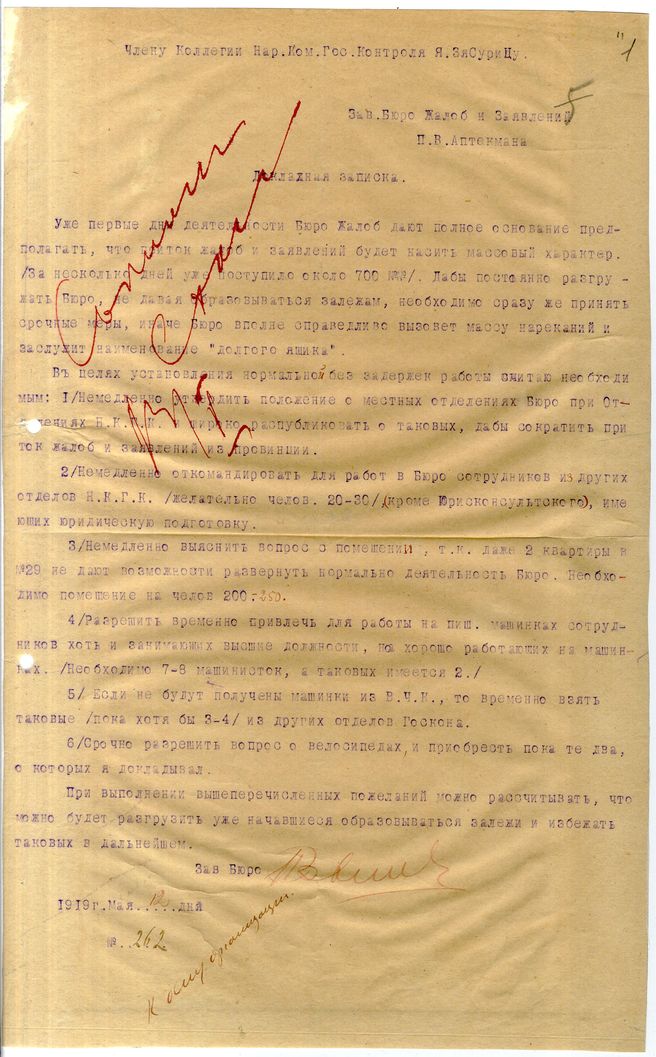 "1
Члену Коллегии Нар.Ком.Гос.Контроля Я.ЗяСуриЦу.
5
Зав.Бюро Жалоб и Заявлений
П.В.Аптекмана
Докладная записка.
Уже первые дни деятельности Бюро Жалоб дают полное основание пред-
полагать, что приток жалоб и заявлений будет насить массовый характер.
/За несколько дней уже поступило около 700 №№/. Дабы постоянно разгру-
жать Бюро, не давая образовываться залежам, необходимо сразу же принять
срочные меры, иначе Бюро вполне справедливо вызовет массу нареканий и
заслужит наименование "долгого ящика".
Въ целях установления нормальной без задержек работы считаю необходи
мым: I/Немедленно утвердить положение о местных отделениях Бюро при От-
делениях Н.К.Г.К. и широко распубликовать о таковых, дабы сократить при
ток жалоб и заявлений из провинции.
2/Немедленно откомандировать для работ в Бюро сотрудников из других
отделов Н.К.Г.К. /желательно челов. 20-30/(кроме Юрисконсультского), име
ющих юридическую подготовку.
3/Немедленно выяснить вопрос с помещении, т.к. даже 2 квартиры в
№29 не дают возможности развернуть нормально деятельность Бюро. Необхо-
димо помещение на челов 200.-250.
4/Разрешить временно привлечь для работы на пиш. машинках сотруд-
ников хоть и занимающих высшие должности, но хорошо работающих на машин-
ках. /Необходимо 7-8 машинисток, а таковых имеется 2./
5/ Если не будут получены машинки из В.Ч.К., то временно взять
таковые /пока хотя бы 3-4/ из других отделов Госкона.
6/Срочно разрешить вопрос о велосипедах, и приобресть пока те два,
о которых я докладывал.
При выполнении вышеперечисленных пожеланий можно рассчитывать, что
можно будет разгрузить уже начавшиеся образовываться залежи и избежать
таковых в дальнейшем.
Зав Бюро
1919г.Мая..12..дня
№..262